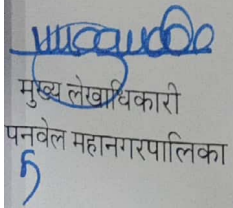 मुख्य लेखाधिकारी
पनवेल महानगरपालिका